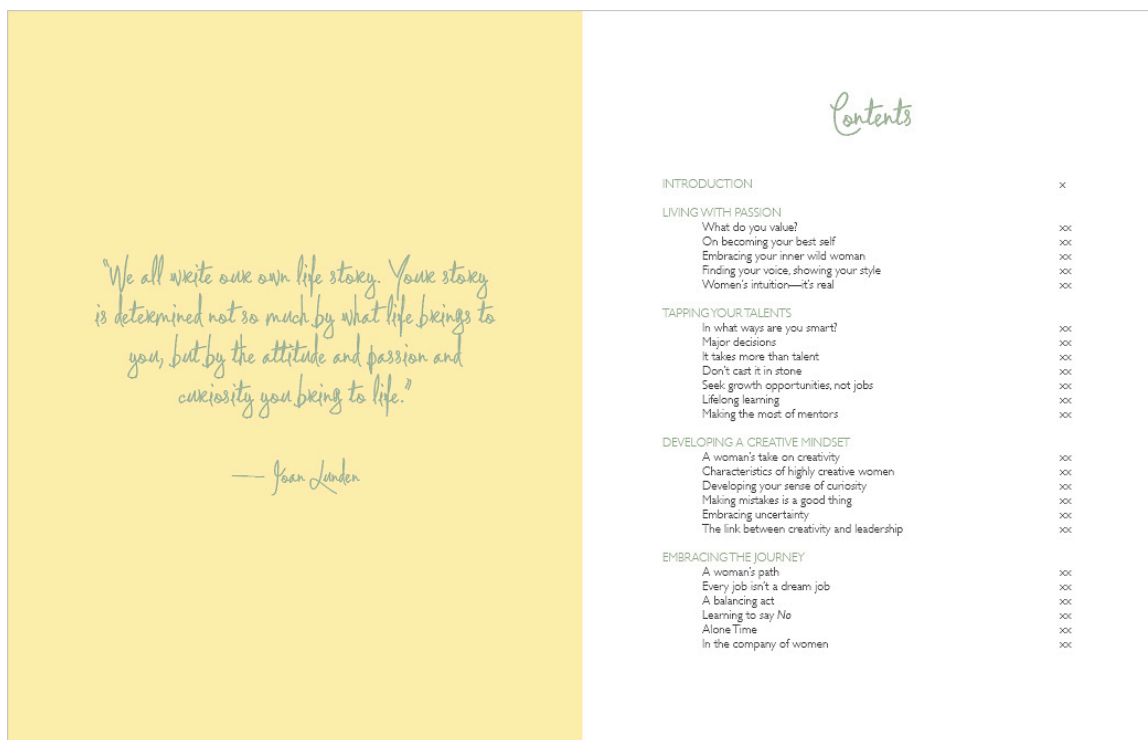 “We all write our own life story. Your story
is determined not so much by what life brings to
you, but by the attitude and passion and
curiosity you bring to life.”
— Joan Lunden
Contents
INTRODUCTION x
LIVING WITH PASSION
What do you value? xx
On becoming your best self xx
Embracing your inner wild woman xx
Finding your voice, showing your style xx
Women’s intuition—it’s real xx
TAPPING YOUR TALENTS
In what ways are you smart? xx
Major decisions xx
It takes more than talent xx
Don’t cast it in stone xx
Seek growth opportunities, not jobs xx
Lifelong learning xx
Making the most of mentors xx
DEVELOPING A CREATIVE MINDSET
A woman’s take on creativity xx
Characteristics of highly creative women xx
Developing your sense of curiosity xx
Making mistakes is a good thing xx
Embracing uncertainty xx
The link between creativity and leadership xx
EMBRACING THE JOURNEY
A woman’s path xx
Every job isn’t a dream job xx
A balancing act xx
Learning to say No xx
Alone Time xx
In the company of women xx